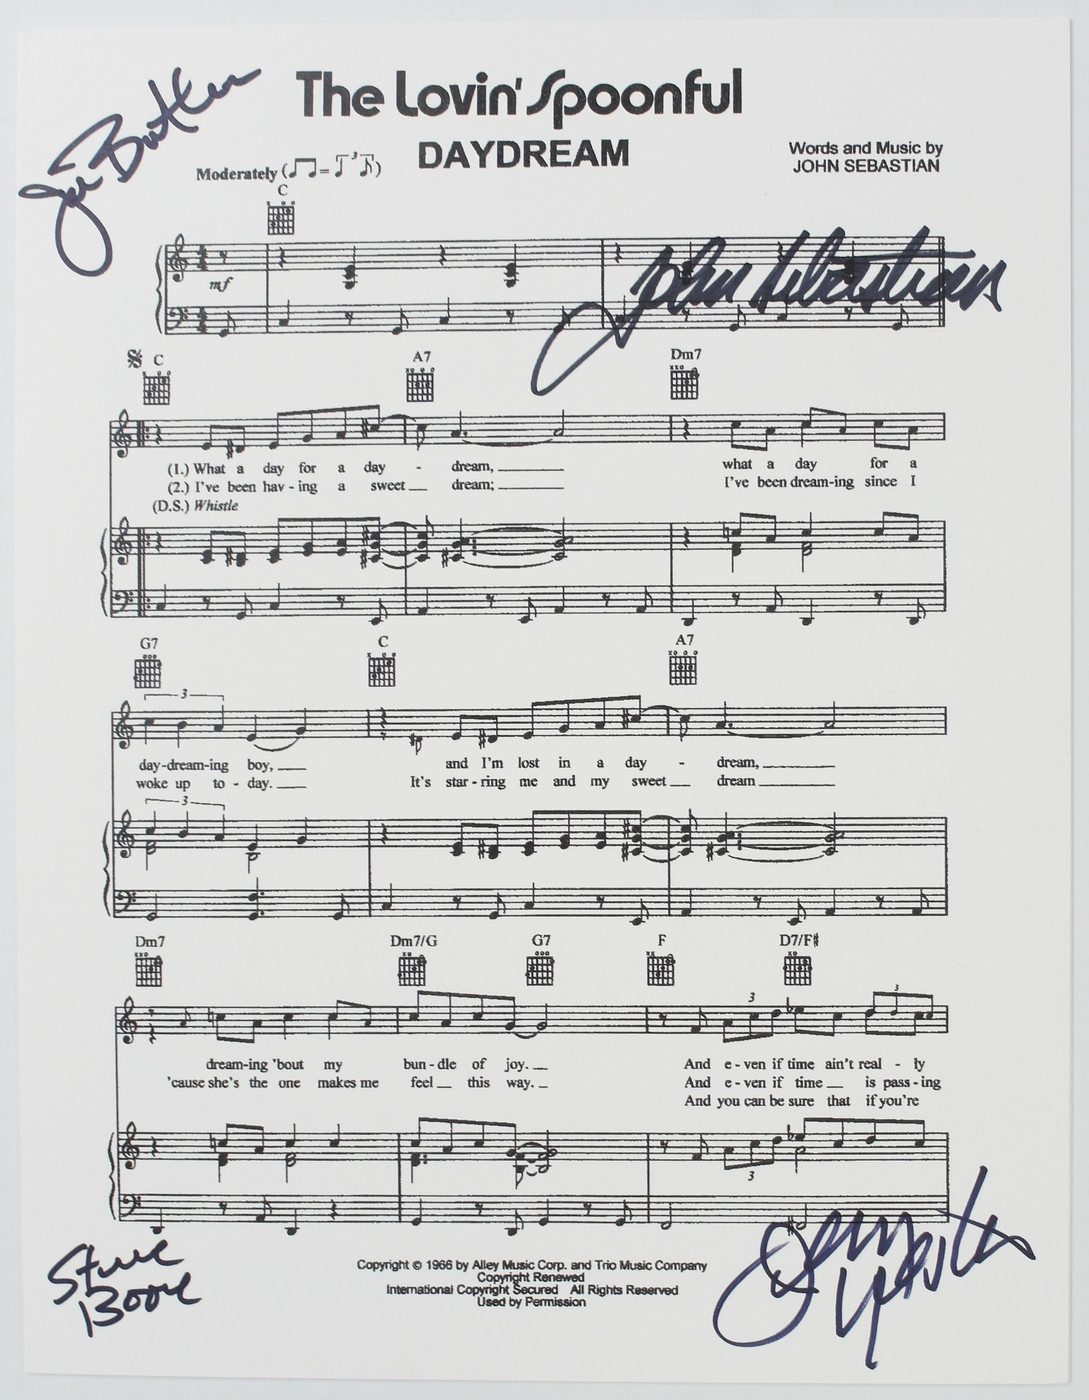 The Lovin' Spoonful
DAYDREAM
Joe Butler
Words and Music by
JOHN SEBASTIAN
Moderately
3
C
mf
John Sebastian
C A7 Dm7
(1.) What a day for a day - dream, what a day for a
(2.) I've been hav - ing a sweet dream; I've been dream-ing since I
(D.S.) Whistle
G7 C A7
3
day-dream-ing boy, and I'm lost in a day - dream,
woke up to - day. It's star - ring me and my sweet dream
3
Dm7 Dm7/G G7 F D7/F#
3 3
dream-ing 'bout my bun - dle of joy. And e - ven if time ain't real - ly
'cause she's the one makes me feel this way. And e - ven if time is pass - ing
And you can be sure that if you're
3
Steve
Boone
Jerry Yester
Copyright © 1966 by Alley Music Corp. and Trio Music Company
Copyright Renewed
International Copyright Secured All Rights Reserved
Used by Permission